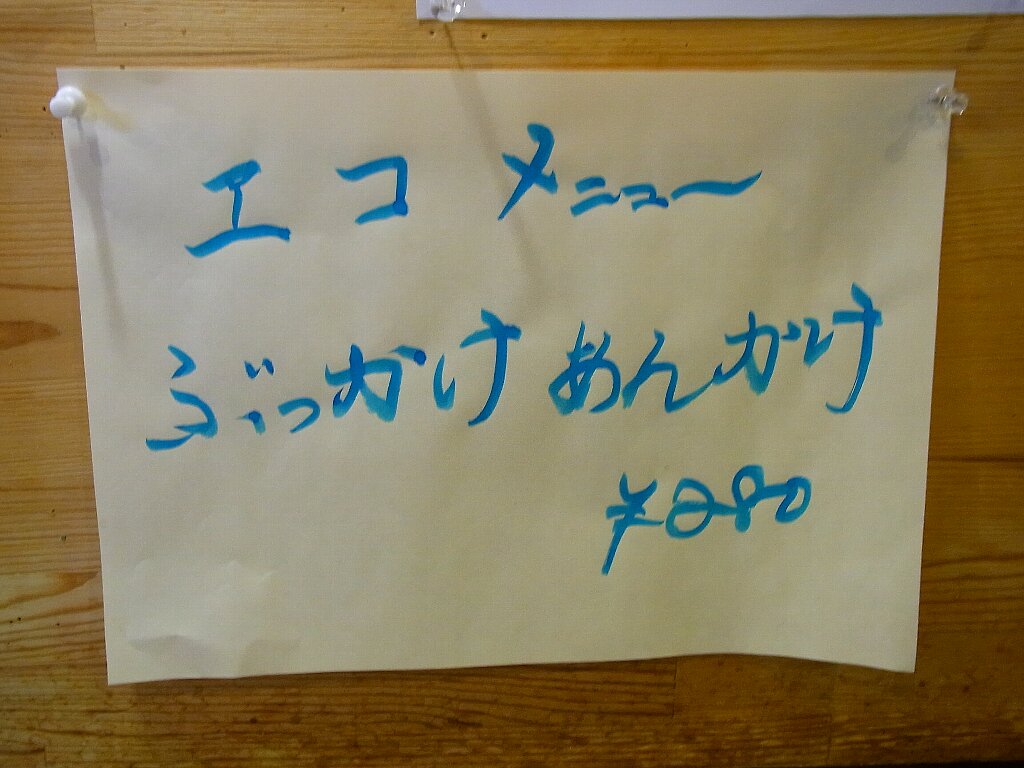 エコメニュー
ぶっかけ あんかけ
¥280